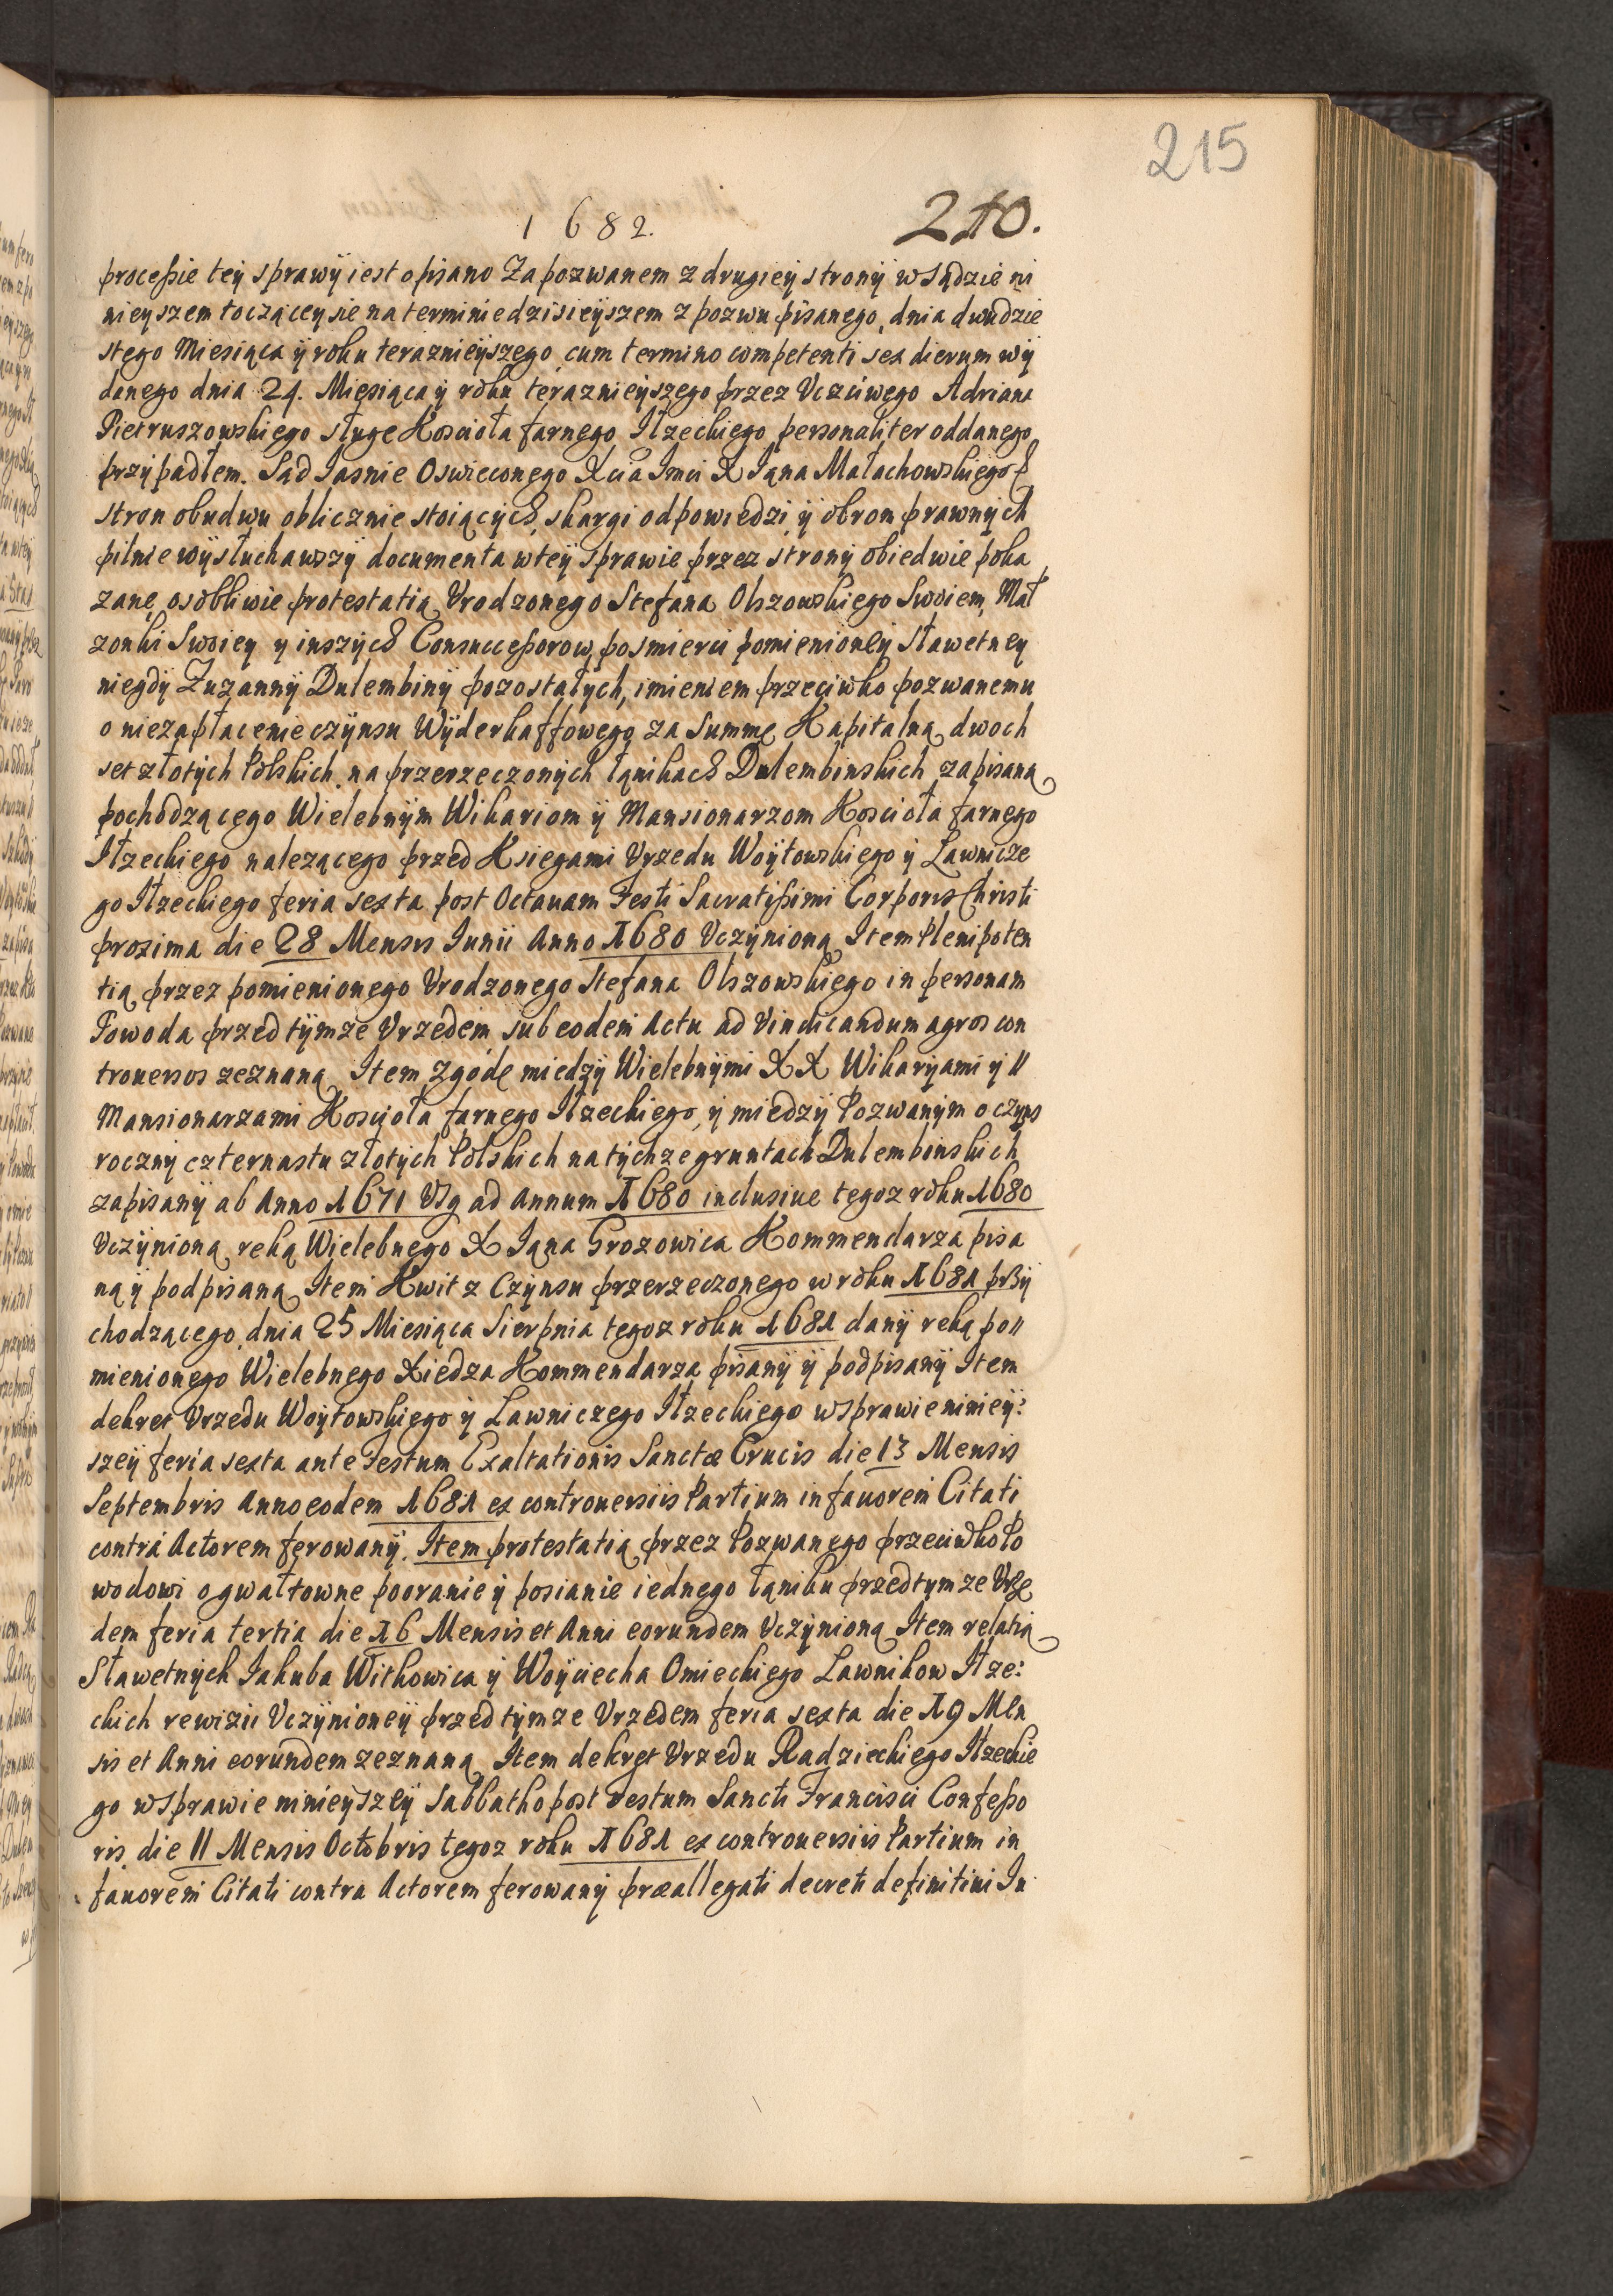 215
1682.
210.
processie tey sprawÿ iest opisano Za pozwanem z drugieÿ stronÿ w Sądzie ni
nieyszem toczącey sie na terminie dzisieÿszem z pozwu pisanego, dnia dwudzie
stego Miesiąca ÿ roku teraznieÿszego cum termino competenti sex dierum wÿ
danego dnia 24. Miesiąca ÿ roku teraznieÿszego przez Vczciwego Adriana
Pietruszowskiego sługe Koscioła farnego Iłzeckiego personaliter oddanego
przÿpadłem. Sąd Iasnie Oswieconego Xcia Imci X Iana Małachowskiego
stron obudwu oblicznie stoiących, skargi odpowiedzi ÿ obron prawnÿch
pilnie wÿsłuchawszÿ documenta w teÿ sprawie przez stronÿ obiedwie poka
zane, osobliwie protestatią Vrodzonego Stefana Olszowskiego Swoiem, Mał
zonki Swoiey y inszÿch Consuccessorow, po smierci pomienioneÿ Sławetney
niegdÿ Zuzannÿ Dulembinÿ pozostałÿch, imieniem przeciwko pozwanemu
o niezapłacenie czÿnsu Wÿderkaffowego za Summę Kapitalną dwoch
set złotÿch Polskich na przerzeczonÿch łanikach Dulembinskich zapisaną
pochodzącego Wielebnÿm Wikariom ÿ Mansionarzom Kosciola farnego
Iłzeckiego nalezącego przed Ksiegami Vrzedu Woÿtowskiego ÿ Lawnicze
go Iłzeckiego feria sexta post Octauam Festi Sacratissimi Corporis Christi
proxima die 28 Mensis Iunii Anno 1680 Vczÿnioną Item Plenipoten
tią przez pomienionego Vrodzonego Stefana Olszowskiego in personam
Powoda przed tÿmze Vrzedem sub eodem Actu ad Vindicandum agros con
trouersos zeznaną Item zgodę miedzÿ Wielebnÿmi XX Wikarÿami ÿ //
Mansionarzami Kosciola farnego Iłzeckiego, ÿ miedzÿ Pozwanÿm o czÿns
rocznÿ czternastu złotÿch Polskich na tÿchze gruntach Dulembinskich
zapisanÿ ab Anno 1671 Vsq ad Annum 1680 inclusiue tegoz roku 1680
Vczÿnioną, reką Wielebnego X Iana Grozowica Kommendarza pisa
ną ÿ podpisaną Item Kwit z Czÿnsu przerzeczonego w roku 1681 przÿ
chodzącego, dnia 25 Miesiąca Sierpnia tegoz roku 1681 danÿ reką po//
mienionego Wielebnego Xiedza Kommendarza pisanÿ ÿ podpisanÿ Item
dekret Vrzedu Woÿtowskiego ÿ Lawniczego Iłzeckiego w sprawie ninieÿ:
szeÿ feria sexta ante Festum Exaltationis Sanctæ Crucis die 13 Mensis
Septembris Anno eodem 1681 ex controuersiis Partium in fauorem Citati
contra Actorem ferowanÿ. Item protestatią przez Pozwanego przeciwko Po
wodowi o gwałtowne pooranie ÿ posianie iednego łaniku przed tymze Vrzę
dem feria tertia die 16 Mensis et Anni eorundem Vczÿnioną Item relatią
Sławetnÿch Iakuba Witkowica ÿ Woÿciecha Omieckiego Lawnikow Iłze:
ckich rewizii Vczÿnioneÿ przed tÿmze Vrzedem feria sexta die 19 Men
sis et Anni eorundem zeznaną Item dekret Vrzedu Radzieckiego Iłzeckie
go w sprawie ninieÿszeÿ Sabbatho post Festum Sancti Francisci Confesso
ris die 11 Mensis Octobris tegoz roku 1681 ex controuersiis Partium in
fauorem Citati contra Actorem ferowanÿ præallegati decreti definitiui In